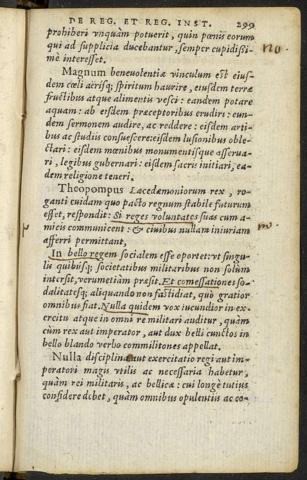 DE REG. ET REG. INST. 299
prohiberi vnquàm potuerit, quin pœnis eorum
qui ad supplicia ducebantur, semper cupidissi-
mè interesset.
no
Magnum beneuolentiæ vinculum est eius-
dem cœli aërisq; spiritum haurire, eiusdem terræ
fructibus atque alimentis vesci: eandem potare
aquam: ab eisdem præceptoribus erudiri: eun-
dem sermonem audire, ac reddere: eisdem arti-
bus ac studiis consuescere: eisdem lusionibus oble-
ctari: eisdem mœnibus monumentisque asserua-
ri, legibus gubernari: eisdem sacris initiari, ea-
dem religione teneri.
Theopompus Lacedæmoniorum rex, ro-
ganti cuidam quo pacto regnum stabile futurum
esset, respondit: Si reges voluntates suas cum a-
micis communicent: & ciuibus nullam iniuriam
no
afferri permittant,
In bello regem socialem esse oportet: vt singu-
lis quibusq; societatibus militaribus non solùm
intersit, verumetiam præsit. Et comessationes so-
dalitatesq; aliquando non fastidiat, quò gratior
omnibus fiat. Nulla quidem vox iucundior in ex-
ercitu atque in omni re militari auditur, quàm
cùm rex aut imperator, aut dux belli cunctos in
bello blando verbo commilitones appellat.
Nulla disciplina aut exercitatio regi aut im-
peratori magis vtilis ac necessaria habetur,
quàm rei militaris, ac bellicæ: cui longè tutius
confidere debet, quàm omnibus opulentiis ac co-